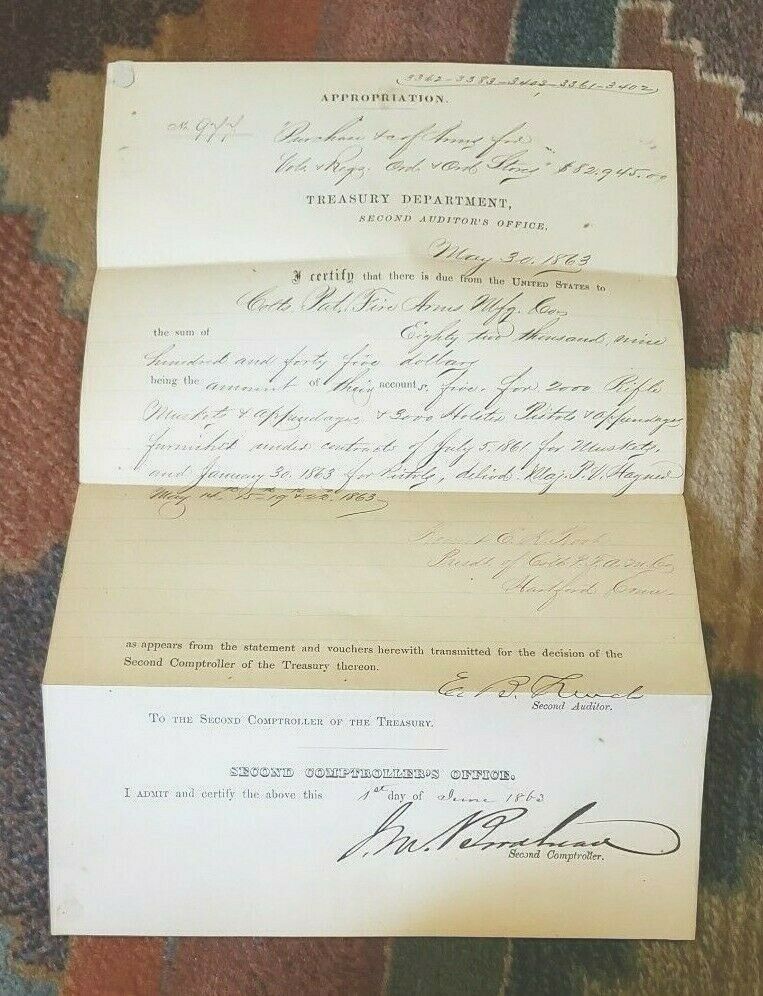 3362-3383-3403-3361-3402
APPROPRIATION.
No.
Purchase &c of Arms for
Vols & Regs. Ord. & Ord. Stores $82,945.00
TREASURY DEPARTMENT,
SECOND AUDITOR'S OFFICE,
May 30. 1863
I certify that there is due from the UNITED STATES to
Colts Pat. Fire Arms Mfg. Co.
the sum of Eighty two thousand, nine
hundred and forty five dollars
being the amount of their accounts, five, for 2000 Rifle
Muskets & appendages & 3000 Holster Pistols & appendages
furnished under contracts of July 5, 1861 for Muskets,
and January 30. 1863 for Pistols, delivd. Maj. P. V. Hagner
May 14th 15th 19th & 22d. 1863
Presdt of Colts P. F. A. M. Co
Hartford Conn.
as appears from the statement and vouchers herewith transmitted for the decision of the
Second Comptroller of the Treasury thereon.
E. B. French
Second Auditor.
TO THE SECOND COMPTROLLER OF THE TREASURY.
SECOND COMPTROLLER'S OFFICE.
I ADMIT and certify the above this 1st day of June 1863
J. M. Brodhead
Second Comptroller.